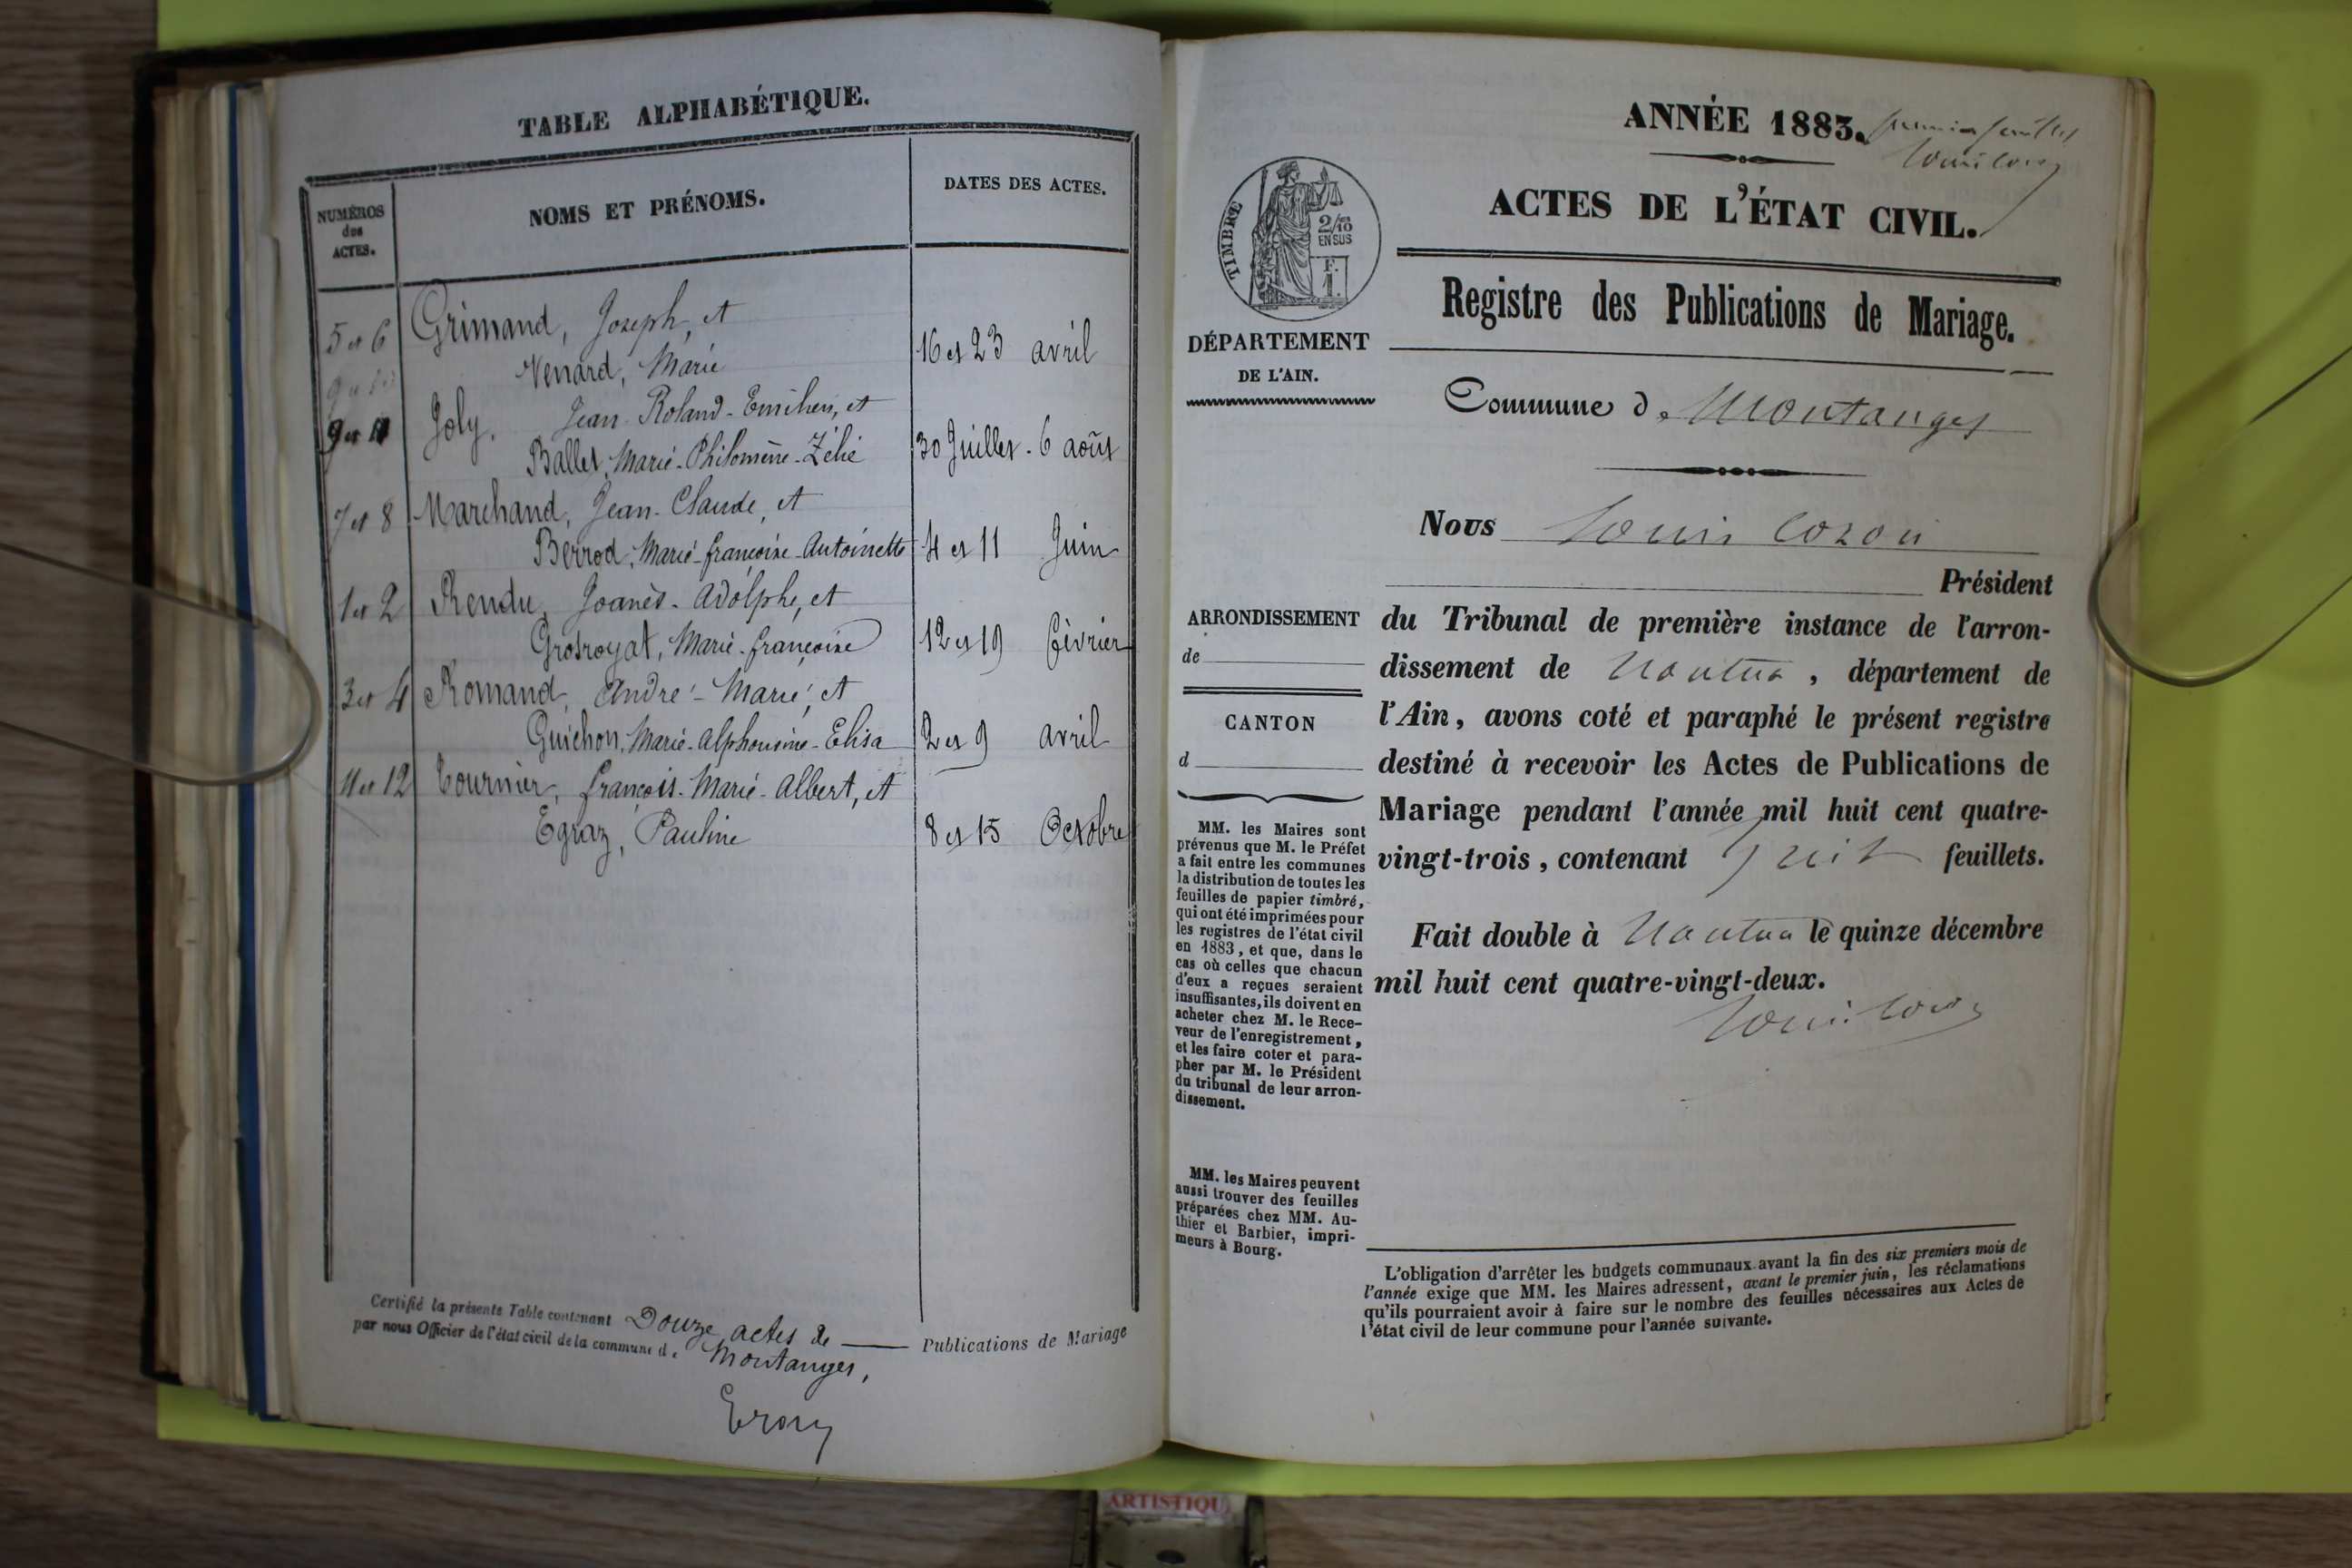 TABLE ALPHABÉTIQUE.
NUMÉROS
des
ACTES.
NOMS ET PRÉNOMS.
DATES DES ACTES.
5 et 6 Grimand, Joseph, et
Venard, Marie 16 et 23 avril
Joly, Jean-Roland-Emilien, et
Ballet, Marie-Philomène-Zélie 30 Juillet-6 août
7 et 8 Marchand, Jean-Claude, et
Berrod, Marie-françoise-Antoinette 4 et 11 Juin
1 et 2 Rendu, Joanès-Adolphe, et
Grosroyat, Marie-françoise 12 et 19 février
3 et 4 Romand, André-Marie, et
Guichon, Marie-Alphonsine-Elisa 2 et 9 avril
11 et 12 Tournier, françois-Marie-Albert, et
Egraz, Pauline 8 et 15 Octobre
Certifié la présente Table contenant Douze actes de Publications de Mariage
par nous Officier de l'état civil de la commune de Montanges,
ANNÉE 1883.
ACTES DE L'ÉTAT CIVIL.
TIMBRE
2/10
EN SUS
F.
1.
DÉPARTEMENT
DE L'AIN.
Registre des Publications de Mariage.
Commune de Montanges
Nous Louis Cozon
Président
ARRONDISSEMENT
de
CANTON
d
du Tribunal de première instance de l'arron-
dissement de Nantua, département de
l'Ain, avons coté et paraphé le présent registre
destiné à recevoir les Actes de Publications de
Mariage pendant l'année mil huit cent quatre-
vingt-trois, contenant huit feuillets.
Fait double à Nantua le quinze décembre
mil huit cent quatre-vingt-deux.
MM. les Maires sont
prévenus que M. le Préfet
a fait entre les communes
la distribution de toutes les
feuilles de papier timbré,
qui ont été imprimées pour
les registres de l'état civil
en 1883, et que, dans le
cas où celles que chacun
d'eux a reçues seraient
insuffisantes, ils doivent en
acheter chez M. le Rece-
veur de l'enregistrement,
et les faire coter et para-
pher par M. le Président
du tribunal de leur arron-
dissement.
MM. les Maires peuvent
aussi trouver des feuilles
préparées chez MM. Au-
thier et Barbier, impri-
meurs à Bourg.
L'obligation d'arrêter les budgets communaux avant la fin des six premiers mois de
l'année exige que MM. les Maires adressent, avant le premier juin, les réclamations
qu'ils pourraient avoir à faire sur le nombre des feuilles nécessaires aux Actes de
l'état civil de leur commune pour l'année suivante.
ARTISTIQU